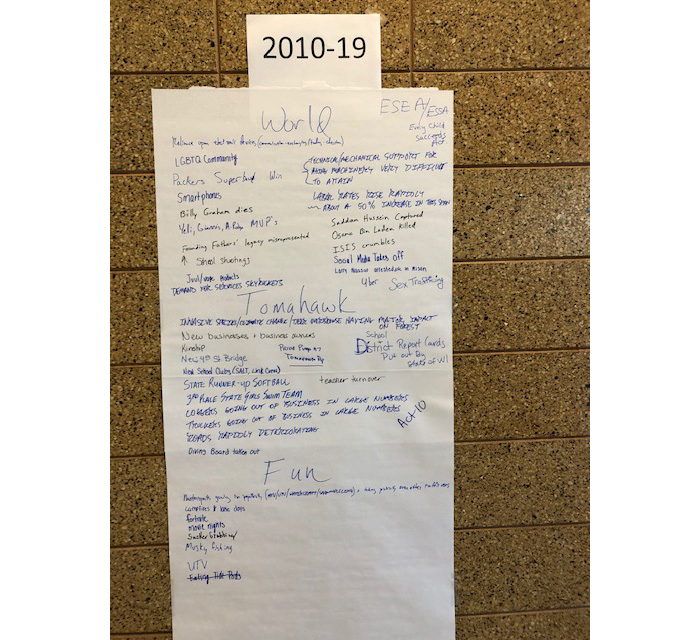 2010-19
World
ESEA/ESSA
Every Child
Succeeds
Act
Reliance upon electronic devices
LGBTQ Community
Packers Superbowl Win
Smartphones
Billy Graham dies
Yeli, Giannis, A. Rodg MVP's
Founding Fathers' legacy misrepresented
↑ School shootings
Juul/vape products
DEMAND FOR SERVICES SKYROCKETS
TECHNICAL/MECHANICAL SUPPORT FOR
MACHINERY VERY DIFFICULT
TO ATTAIN
LABOR RATES RISE RAPIDLY
ABOUT A 50% INCREASE IN THIS SPAN
Saddam Hussein Captured
Osama Bin Laden Killed
ISIS crumbles
Social Media Takes off
Larry Nassar in Prison
Uber
Sex Trafficking
Tomahawk
INVASIVE SPECIES/CLIMATE CHANGE/DEER HAVING MAJOR IMPACT
ON FOREST
New businesses + business owners
Kinship
New 4th St. Bridge
New School Clubs (SALT, Link Crew)
STATE RUNNER-UP SOFTBALL
3rd PLACE STATE GIRLS SWIM TEAM
LOGGERS GOING OUT OF BUSINESS IN LARGE NUMBERS
TRUCKERS GOING OUT OF BUSINESS IN LARGE NUMBERS
ROADS RAPIDLY DETERIORATING
Diving Board taken out
School
District Report Cards
Put out by
State of WI
teacher turnover
Act-10
Fun
campfires & lake days
fortnite
movie nights
Sucker
Musky fishing
UTV
Eating Tide Pods